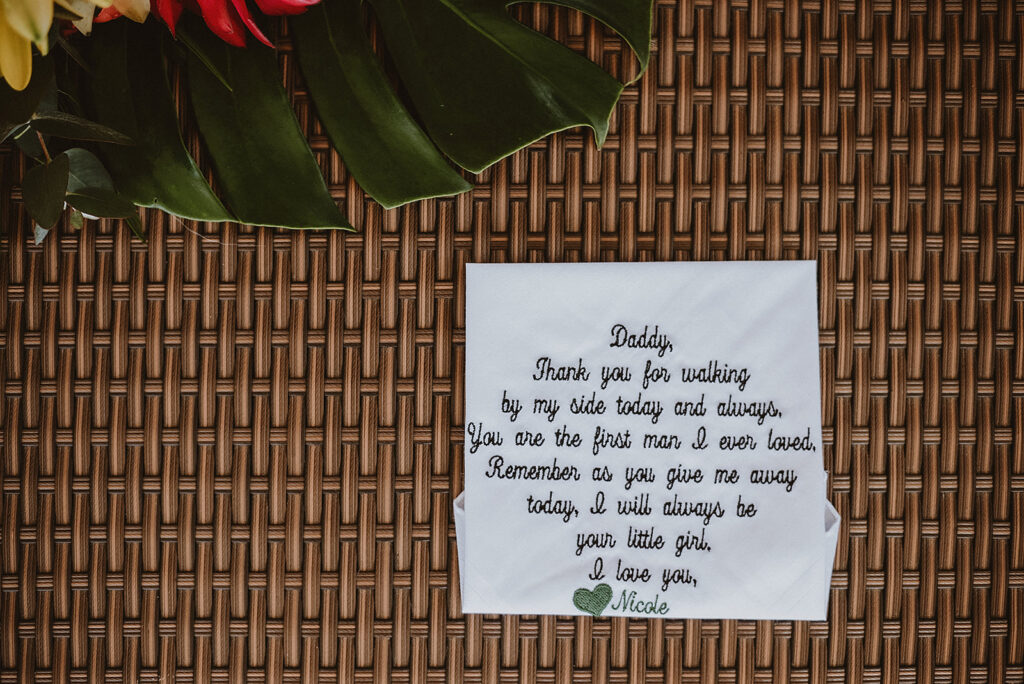 Daddy,
Thank you for walking
by my side today and always.
You are the first man I ever loved.
Remember as you give me away
today, I will always be
your little girl.
I love you,
Nicole